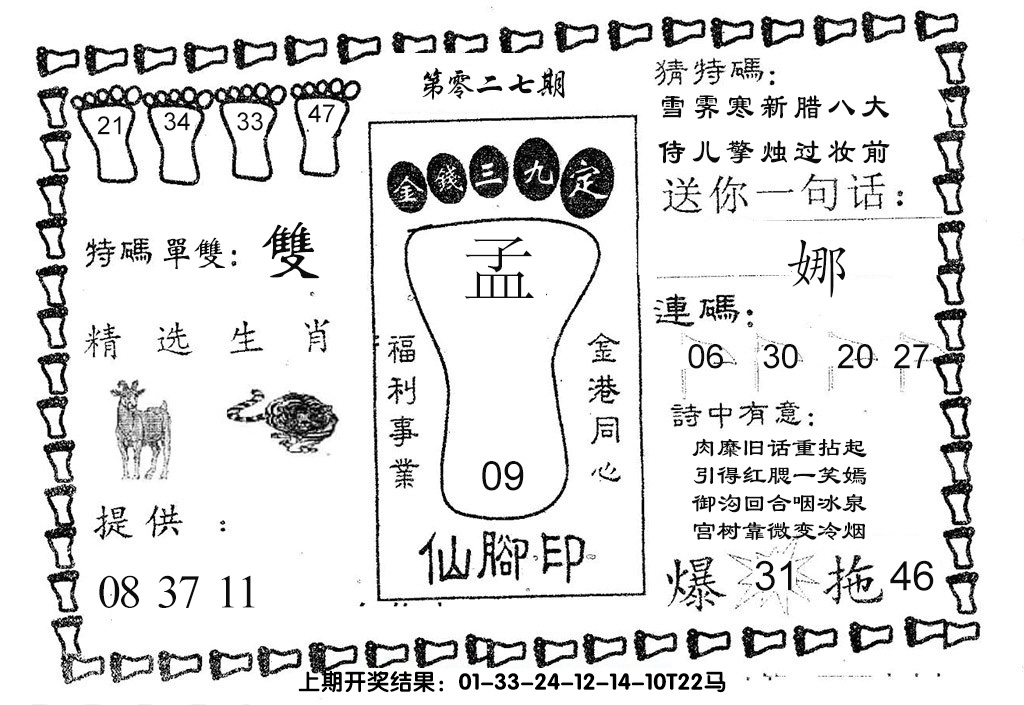 第零二七期
21 34 33 47
特碼單雙：雙
精选生肖
提供：
08 37 11
金錢三九定
孟
福利事業
金港同心
09
仙腳印
猜特碼：
雪霁寒新腊八大
侍儿擎烛过妆前
送你一句话：
娜
連碼：
06 30 20 27
詩中有意：
肉糜旧话重拈起
引得红腮一笑嫣
御沟回合咽冰泉
宫树靠微变冷烟
爆 31 拖 46
上期开奖结果：01-33-24-12-14-10T22马